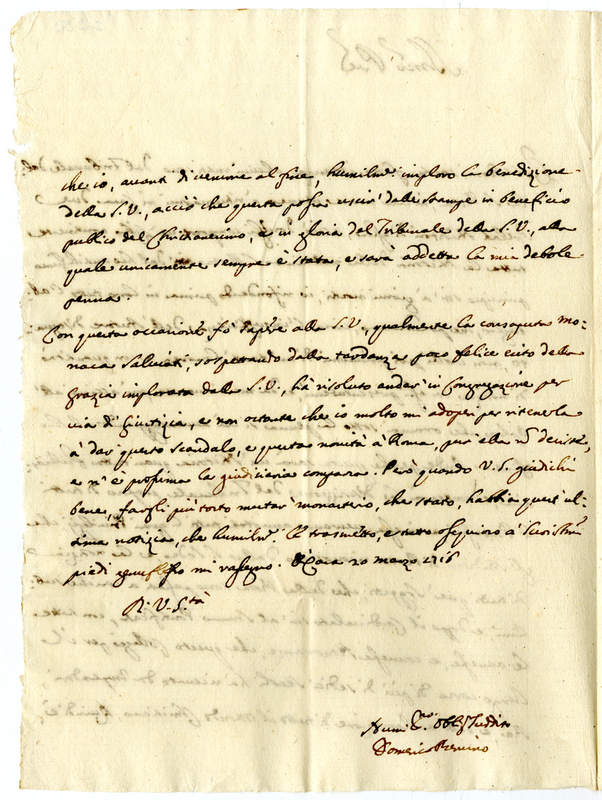 che io, avanti di venirne al fine, humilm.e imploro la benedizione
della S.V., acciò che questa possa uscir' dalle stampe in beneficio
publico del Christianesimo, e in gloria del Tribunale della S.V., alla
quale unicamente sempre è stata, e sarà addetta la mia debole
penna.
Con questa occasione fò sapere alla S.V., qualmente la consaputa Mo-
naca Salviati, sospettando dalla tardanza poco felice esito della
grazia implorata dalla S.V., hà risoluto andar' in Congregazione per
via di Giustizia, e non ostante che io molto mi adoperi per ritenerla
à dar questo scandalo, e questa novità à Roma, pur' ella n' decista,
e n' è prossima la giudiciaria comparsa. Però quando V.S. giudichi
bene, fargli più tosto mutar' monasterio, che stato, habbia quest' ul-
tima notizia, che humilm.e Le trasmetto, e tutto ossequioso a' Suoi SS.mi
piedi genuflesso mi rassegno. Casa 20 marzo 1716
Di V. S.tà
Humil.mo Obbl. Suddito
Domenico Bernino